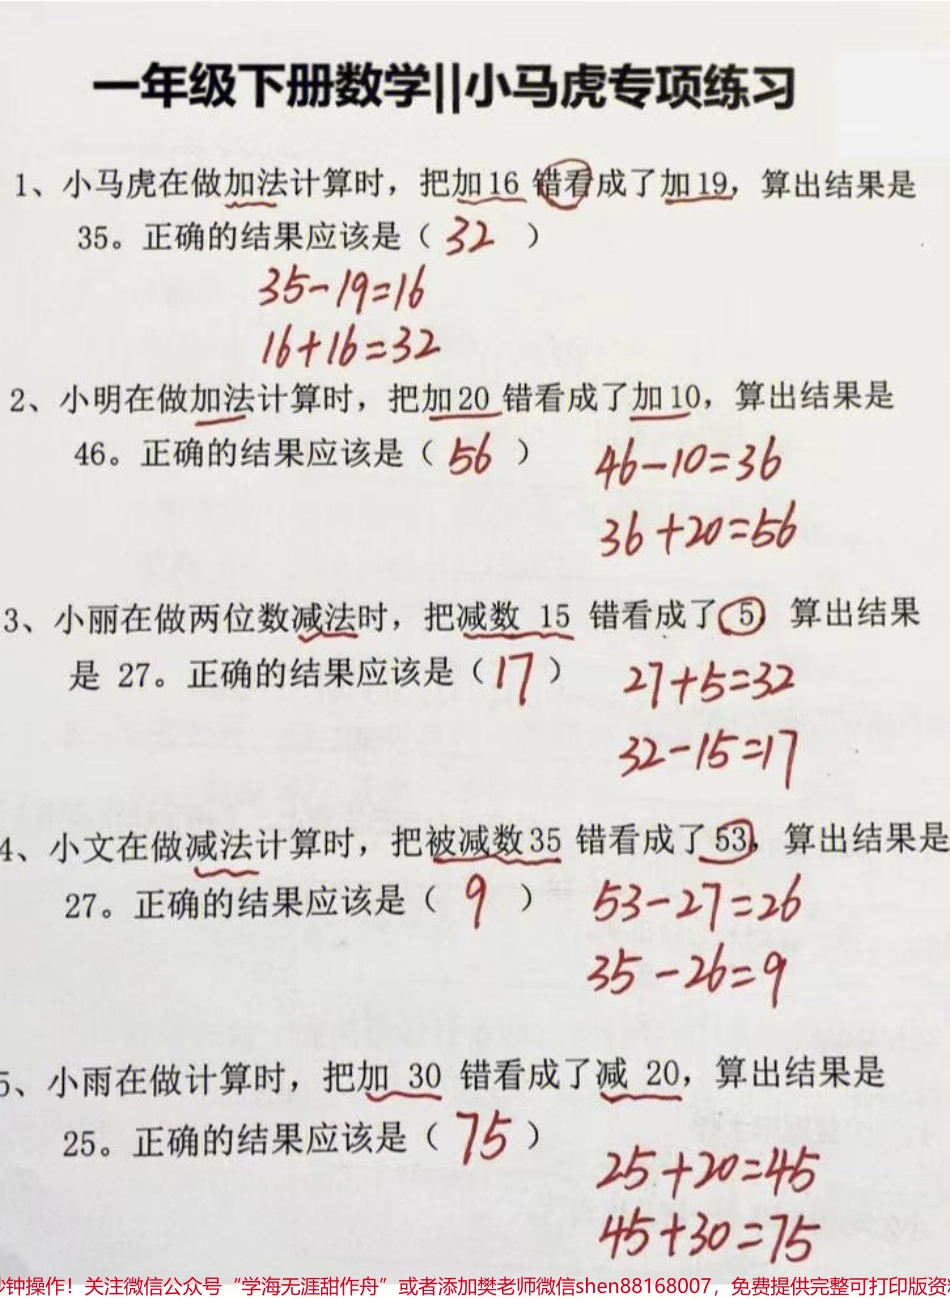 一年级下册数学||小马虎专项练习
1、小马虎在做加法计算时，把加16 错看成了加19，算出结果是
35。正确的结果应该是（ 32 ）
35-19=16
16+16=32
2、小明在做加法计算时，把加20 错看成了加10，算出结果是
46。正确的结果应该是（ 56 ）
46-10=36
36+20=56
3、小丽在做两位数减法时，把减数 15 错看成了 5，算出结果
是 27。正确的结果应该是（ 17 ）
27+5=32
32-15=17
4、小文在做减法计算时，把被减数35 错看成了 53，算出结果是
27。正确的结果应该是（ 9 ）
53-27=26
35-26=9
5、小雨在做计算时，把加 30 错看成了减 20，算出结果是
25。正确的结果应该是（ 75 ）
25+20=45
45+30=75
钟操作！关注微信公众号“学海无涯甜作舟”或者添加樊老师微信shen88168007，免费提供完整可打印版资